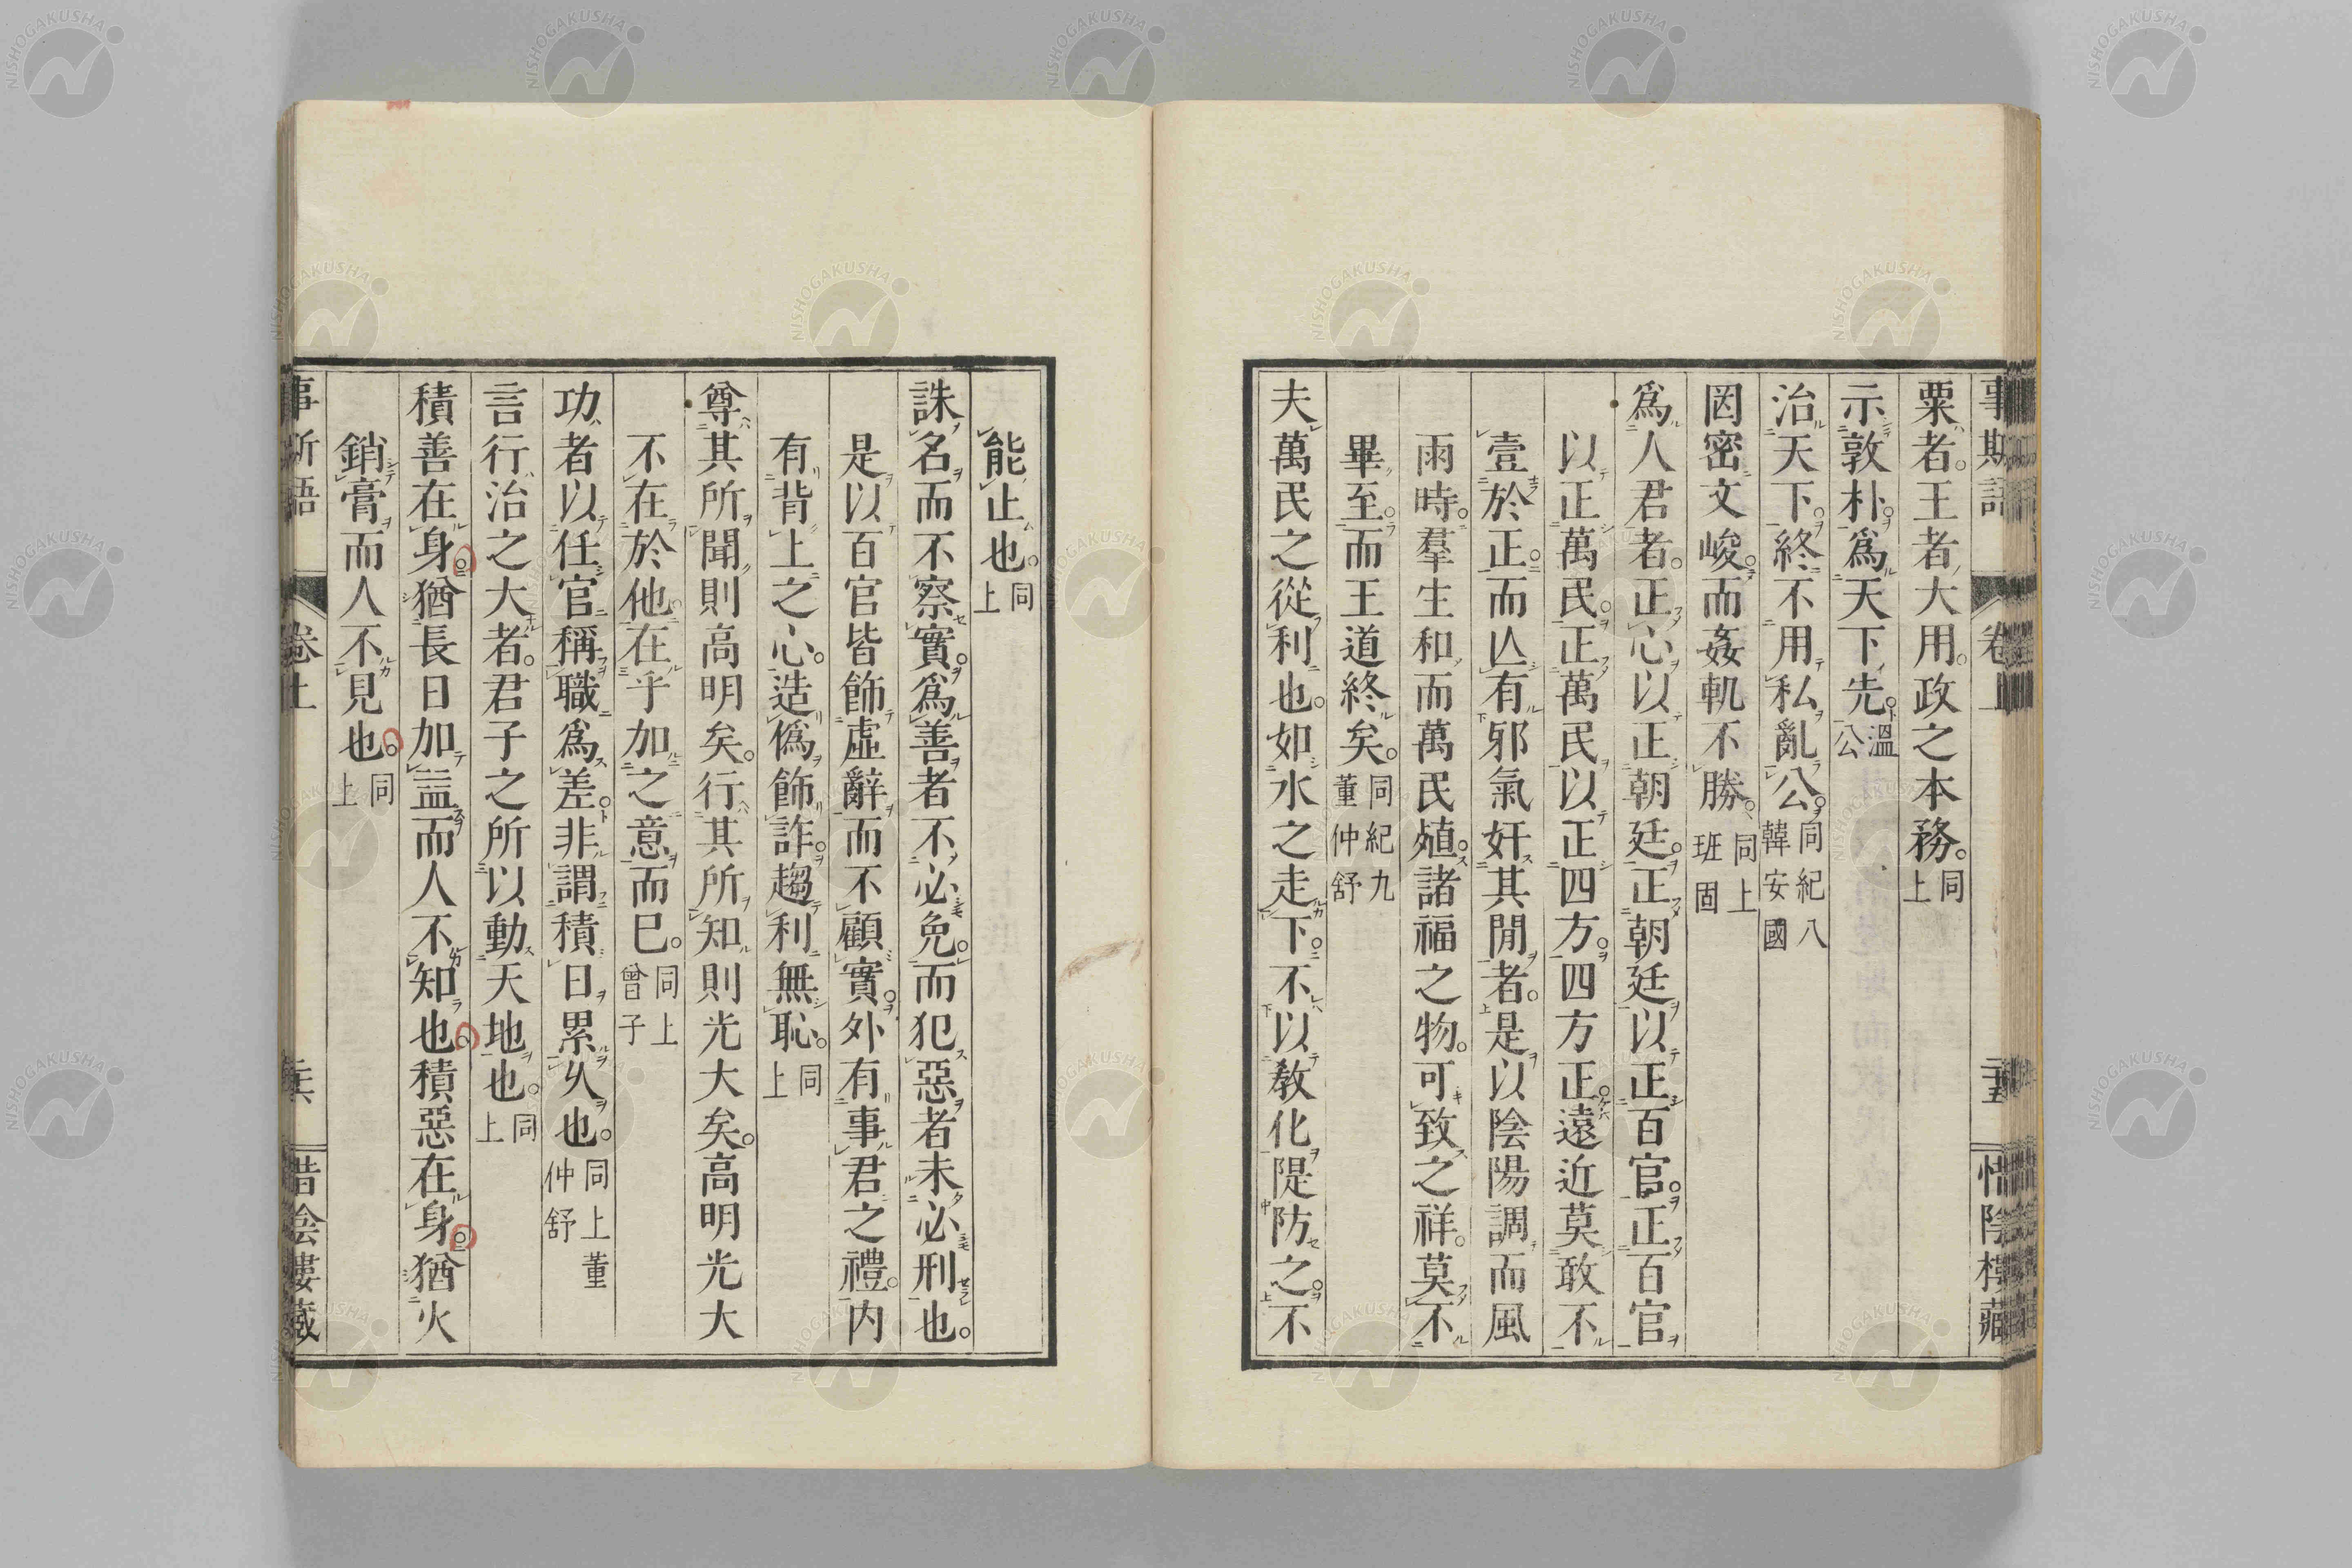 粟者。王者大用。政之本務。同上
示敦朴。爲天下先。溫公
治天下。終不用私亂公。同紀八韓安國
罔密文峻。而姦軌不勝。同上班固
爲人君者。正心以正朝廷。正朝廷以正百官。正百官
以正萬民。正萬民以正四方。四方正。遠近莫敢不
壹於正。而亾有邪氣奸其閒者。是以陰陽調而風
雨時。羣生和而萬民殖。諸福之物。可致之祥。莫不
畢至。而王道終矣。同紀九董仲舒
夫萬民之從利也。如水之走下。不以敎化隄防之。不
能止也。同上
誅名而不察實。爲善者不必免。而犯惡者未必刑也。
是以百官皆飾虛辭而不顧實。外有事君之禮。內
有背上之心。造僞飾詐。趨利無恥。同上
尊其所聞則高明矣。行其所知則光大矣。高明光大
不在於他。在乎加之意而已。同上曾子
功者以任官稱職爲差。非謂積日累乆也。同上董仲舒
言行治之大者。君子之所以動天地也。同上
積善在身。猶長日加益而人不知也。積惡在身。猶火
銷膏而人不見也。同上
卷上
NISHOGAKUSHA